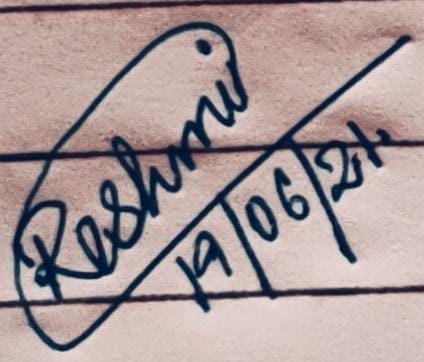 Reshmi
19/06/21